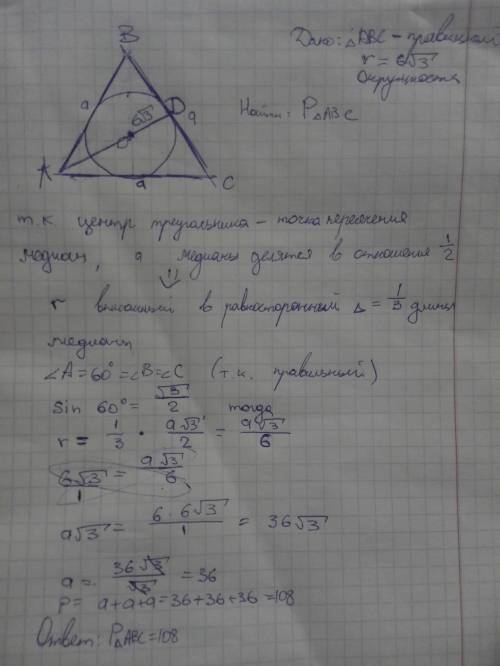 Дано: △ABC – правильный
r = 6√3
окружность
Найти: P△ABC
B
a
D
6√3
a
O
A
a
C
т.к центр треугольника – точка пересечения
медиан, а медианы делятся в отношении 1/2
⇓
r вписанный в равносторонный △ = 1/3 длины
медианы
∠A = 60° = ∠B = ∠C (т.к. правильный)
sin 60° = √3/2 тогда
r = 1/3 · a√3/2 = a√3/6
6√3/1 = a√3/6
a√3 = 6·6√3/1 = 36√3
a = 36√3/√3 = 36
P = a+a+a = 36+36+36 = 108
Ответ: P△ABC = 108